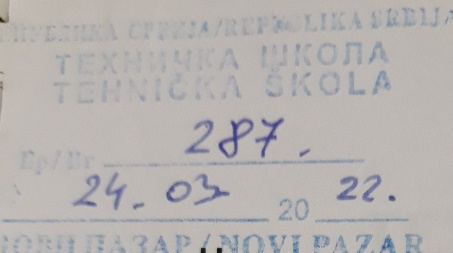 РЕПУБЛИКА СРБИЈА/REPUBLIKA SRBIJA
ТЕХНИЧКА ШКОЛА
TEHNIČKA ŠKOLA
Бр/Br 287.
24. 03 20 22.
НОВИ ПАЗАР / NOVI PAZAR